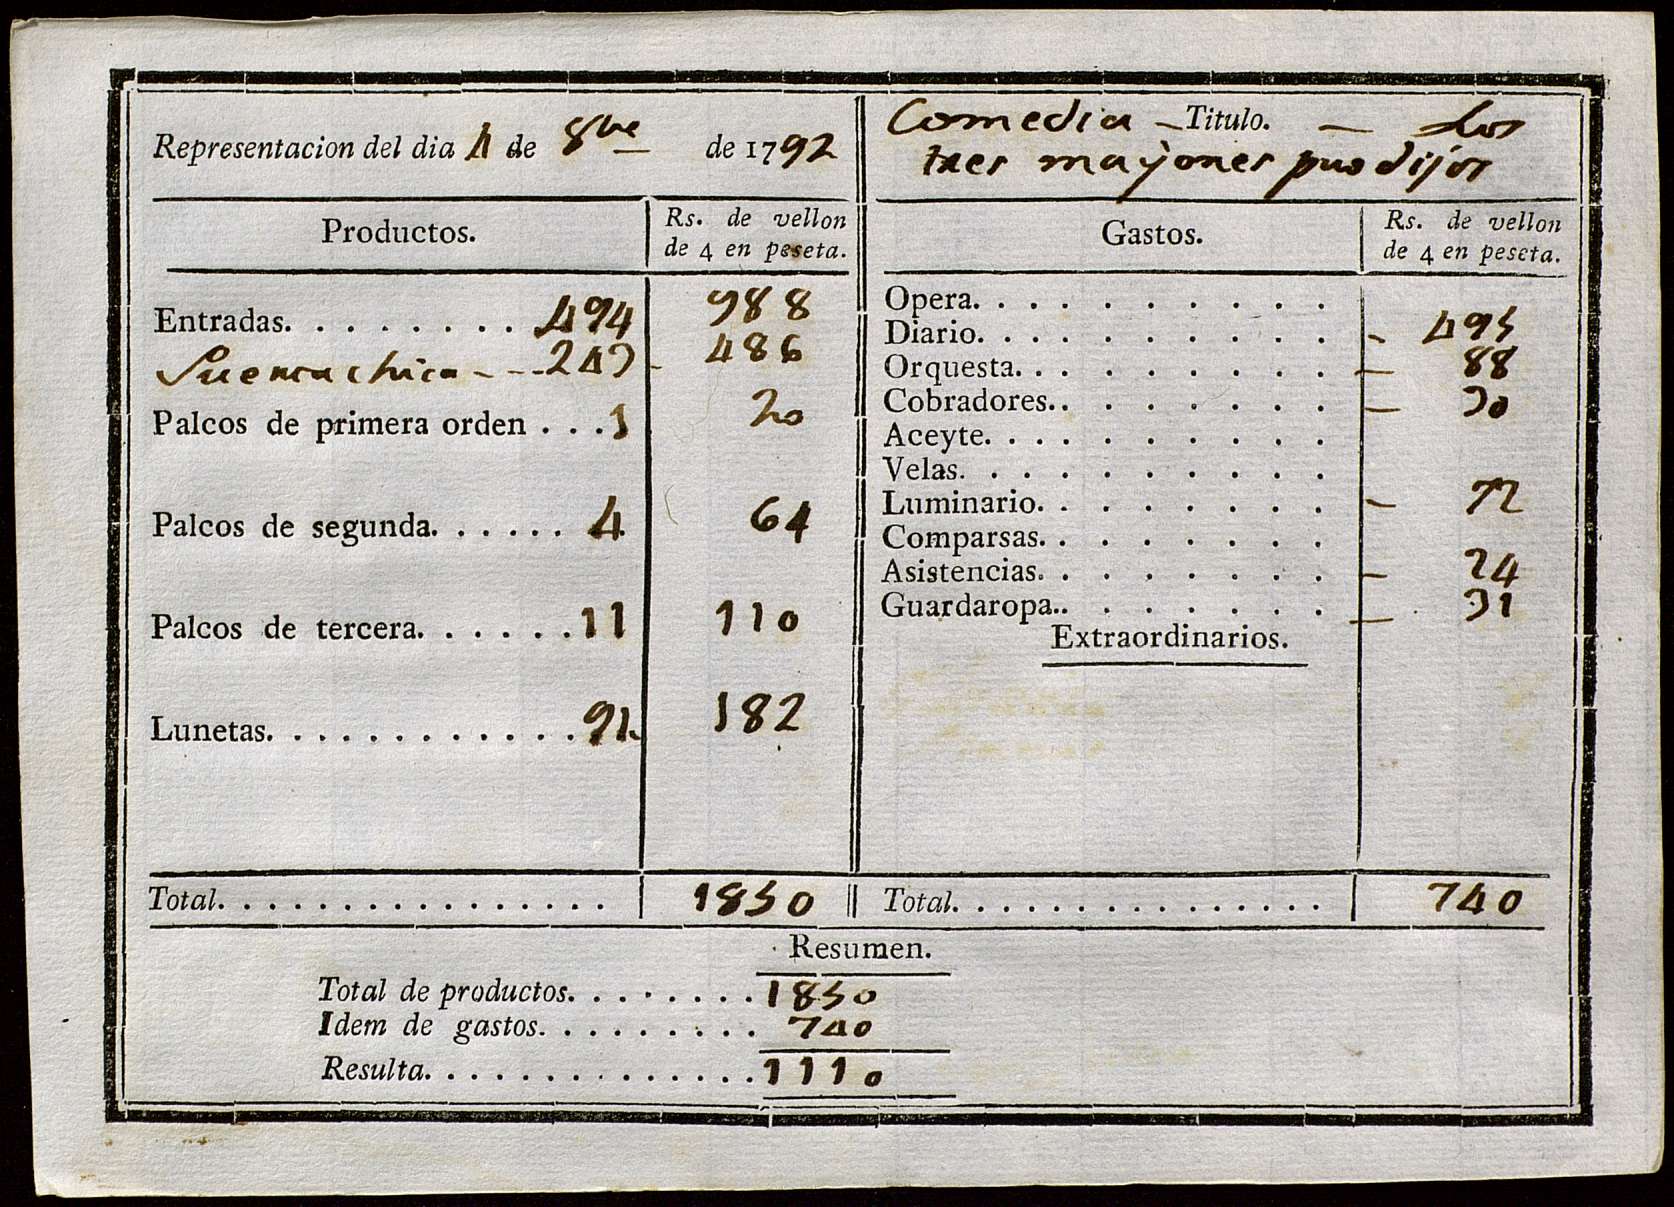 Representacion del dia 4 de 8bre de 1792
Comedia - Titulo. - Los
tres mayores prodijos
Productos. Rs. de vellon
de 4 en peseta.
Entradas. . . . . . . . . 494 988
Puerta chica - - - 243 - 486
Palcos de primera orden . . . 1 20
Palcos de segunda. . . . . . 4 64
Palcos de tercera. . . . . . . 11 110
Lunetas. . . . . . . . . . . . . 91 182
Total. . . . . . . . . . . . . . . . 1850
Gastos. Rs. de vellon
de 4 en peseta.
Opera. . . . . . . . . . .
Diario. . . . . . . . . . . - 495
Orquesta. . . . . . . . . . - 88
Cobradores. . . . . . . . . - 30
Aceyte. . . . . . . . . . .
Velas. . . . . . . . . . .
Luminario. . . . . . . . . - 72
Comparsas. . . . . . . . .
Asistencias. . . . . . . . . - 24
Guardaropa. . . . . . . . . - 31
Extraordinarios.
Total. . . . . . . . . . . . . . . . 740
Resumen.
Total de productos. . . . . . . . 1850
Idem de gastos. . . . . . . . . 740
Resulta. . . . . . . . . . . . . . 1110